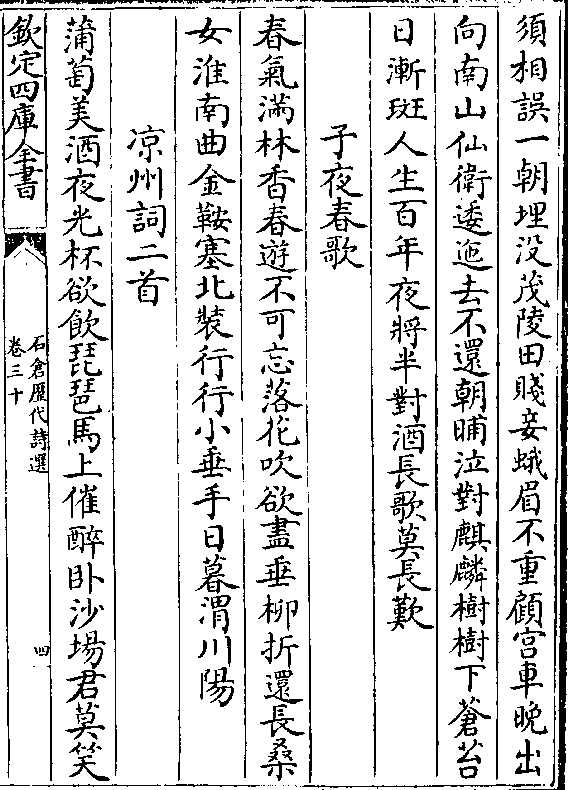 須相誤一朝埋没茂陵田賤妾蛾眉不重顧宫車晚出
向南山仙衛逶迤去不還朝晡泣對麒麟樹樹下蒼苔
日漸斑人生百年夜將半對酒長歌莫長歎
子夜春歌
春氣滿林香春遊不可忘落花吹欲盡垂柳折還長桑
女淮南曲金鞍塞北裝行行小垂手日暮渭川陽
凉州詞二首
蒲萄美酒夜光杯欲飲琵琶馬上催醉卧沙場君莫笑
欽定四庫全書
石倉歷代詩選
卷三十
四